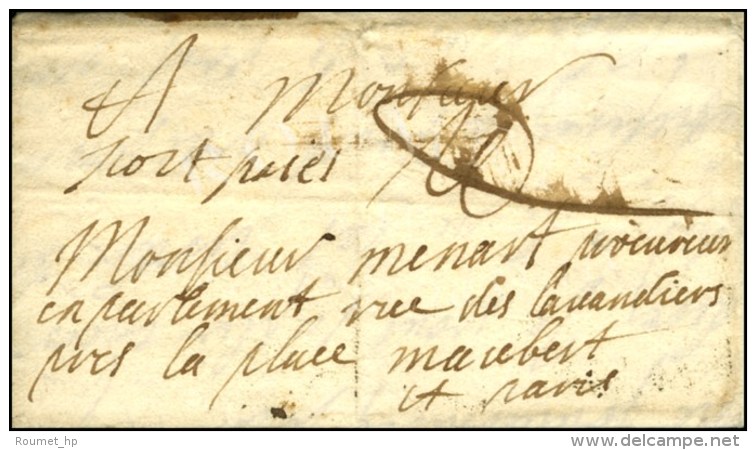 A Monsieur
port paiés
Monsieur menart procureur
en parlement rue des lavandiers
pres la place maubert
A paris
Roumet_hp
delcampe.net